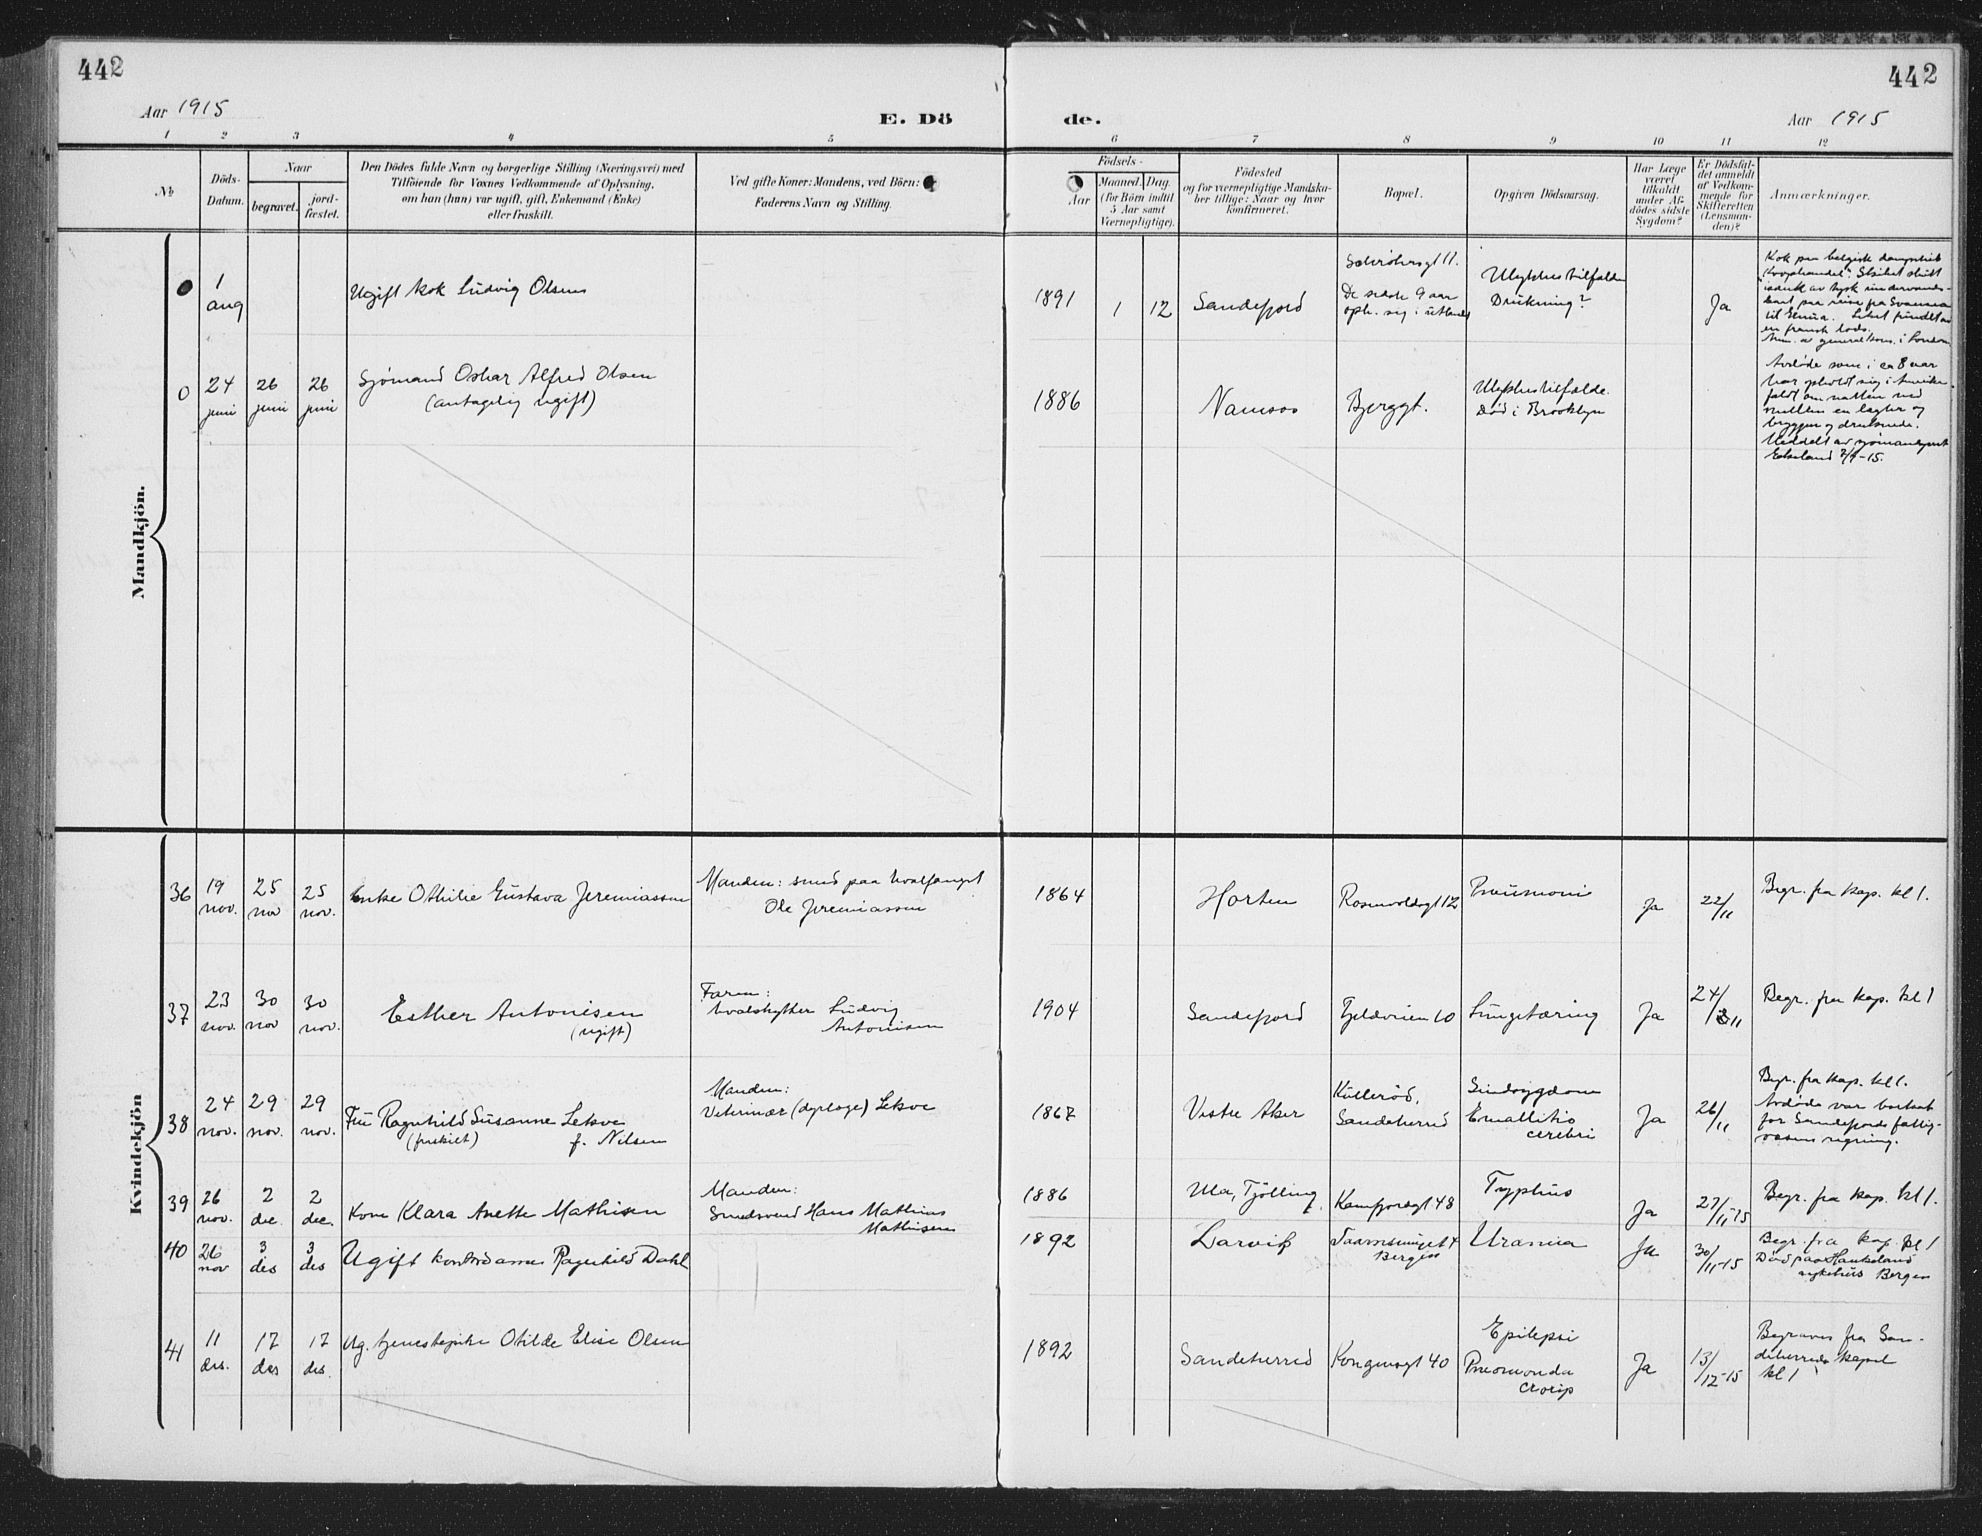 442
442
Aar 1915
E. Dö
de.
Aar 1915
1 2 3 4 5 6 7 8 9 10 11 12
No
Döds-
Datum.
Naar
begravet.
jord-
fæstet.
Den Dödes fulde Navn og borgerlige Stilling (Næringsvei) med
Tilföiende for Voxnes Vedkommende af Oplysning,
om han (hun) var ugift, gift, Enkemand (Enke)
eller fraskilt.
Ved gifte Koner: Mandens, ved Börn:
Faderens Navn og Stilling.
Födsels-
Aar
Maaned. Dag.
(for Börn indtil
5 Aar samt
Værnepligtige).
Födested
og for værnepligtige Mandska-
ber tillige: Naar og hvor
konfirmeret.
Bopæl.
Opgiven Dödsaarsag.
Har Læge
været
tilkaldt
under Af-
dödes sidste
Sygdom?
Er Dödsfal-
det anmeldt
af Vedkom-
mende for
Skifteretten
(Lensman-
den)?
Anmærkninger.
Mandkjön.
0
1
aug
Ugift kok Ludvig Olsen
1891
1
12
Sandefjord
gt 11.
De sidste 9 aar
oph. sig i utlandet
Ulykkestilfælde
Drukning?
Ja
Kok paa belgisk dampskib
Skibet skutt
isænk av tysk undervands-
baat paa reise fra Swansea
til Liket fundet av
en fransk lods.
i London
0
24
juni
26
juni
26
juni
Sjömand Oskar Alfred Olsen
(antagelig ugift)
1886
Namsos
Bjerggt.
Ulykkestilfælde.
Död i Brooklyn
Avdöde som i ca 8 aar
har opholdt sig i Amerika
faldt om natten ned
mellem en lægter og
bryggen og druknede.
Meddelt av sjömandsprest
-15.
Kvindekjön
36
19
nov.
25
nov
25
nov.
Enke Othilie Gustava Jeremiassen
Manden: smed paa hvalfangst
Ole Jeremiassen
1864
Horten
Rosenvoldsgt 12
Pneumoni
Ja
22/11
Begr. fra kap. kl 1.
37
23
nov.
30
nov
30
nov.
Esther Antonisen
(ugift)
Faren:
hvalskytter Ludvig
Antonisen
1904
Sandefjord
Fjeldveien 10
Lungetæring
Ja
24/11
Begr. fra kap. kl 1
38
24
nov.
29
nov.
29
nov.
Fru Ragnhild Susanne Leksve
(fraskilt) f. Nilsen
Manden:
Veterinær (dyrlæge) Leksve
1867
Vestre Aker
Kulleröd,
Sandeherred
Sindssygdom
Emallitio
cerebri
Ja
26/11
Begr. fra kap. kl 1.
Avdöde var bortsat
for Sandefjords fattig-
væsens regning.
39
26
nov.
2
dec.
2
dec.
Kone Klara Anette Mathisen
Manden:
Smedsvend Hans Mathias
Mathisen
1886
Ula, Tjölling
Kamfjordgt 48
Typhus
Ja
27/11-15
Begr. fra kap. kl 1.
40
26
nov
3
des
3
des
Ugift kontordame Ragnhild Dahl
1892
Larvik
Bergen
Uræmia
Ja
30/11-15
Begr. fra kap. kl 1
Död paa Haukeland
sykehus Bergen
41
11
des.
17
des
17
des.
Ug. tjenestepike Otilde Elise Olsen
1892
Sandeherred
Kongensgt 40
Epilepsi
Pneumonia
croup
Ja
13/12-15
Begraves fra San-
deherreds kapel
kl 1